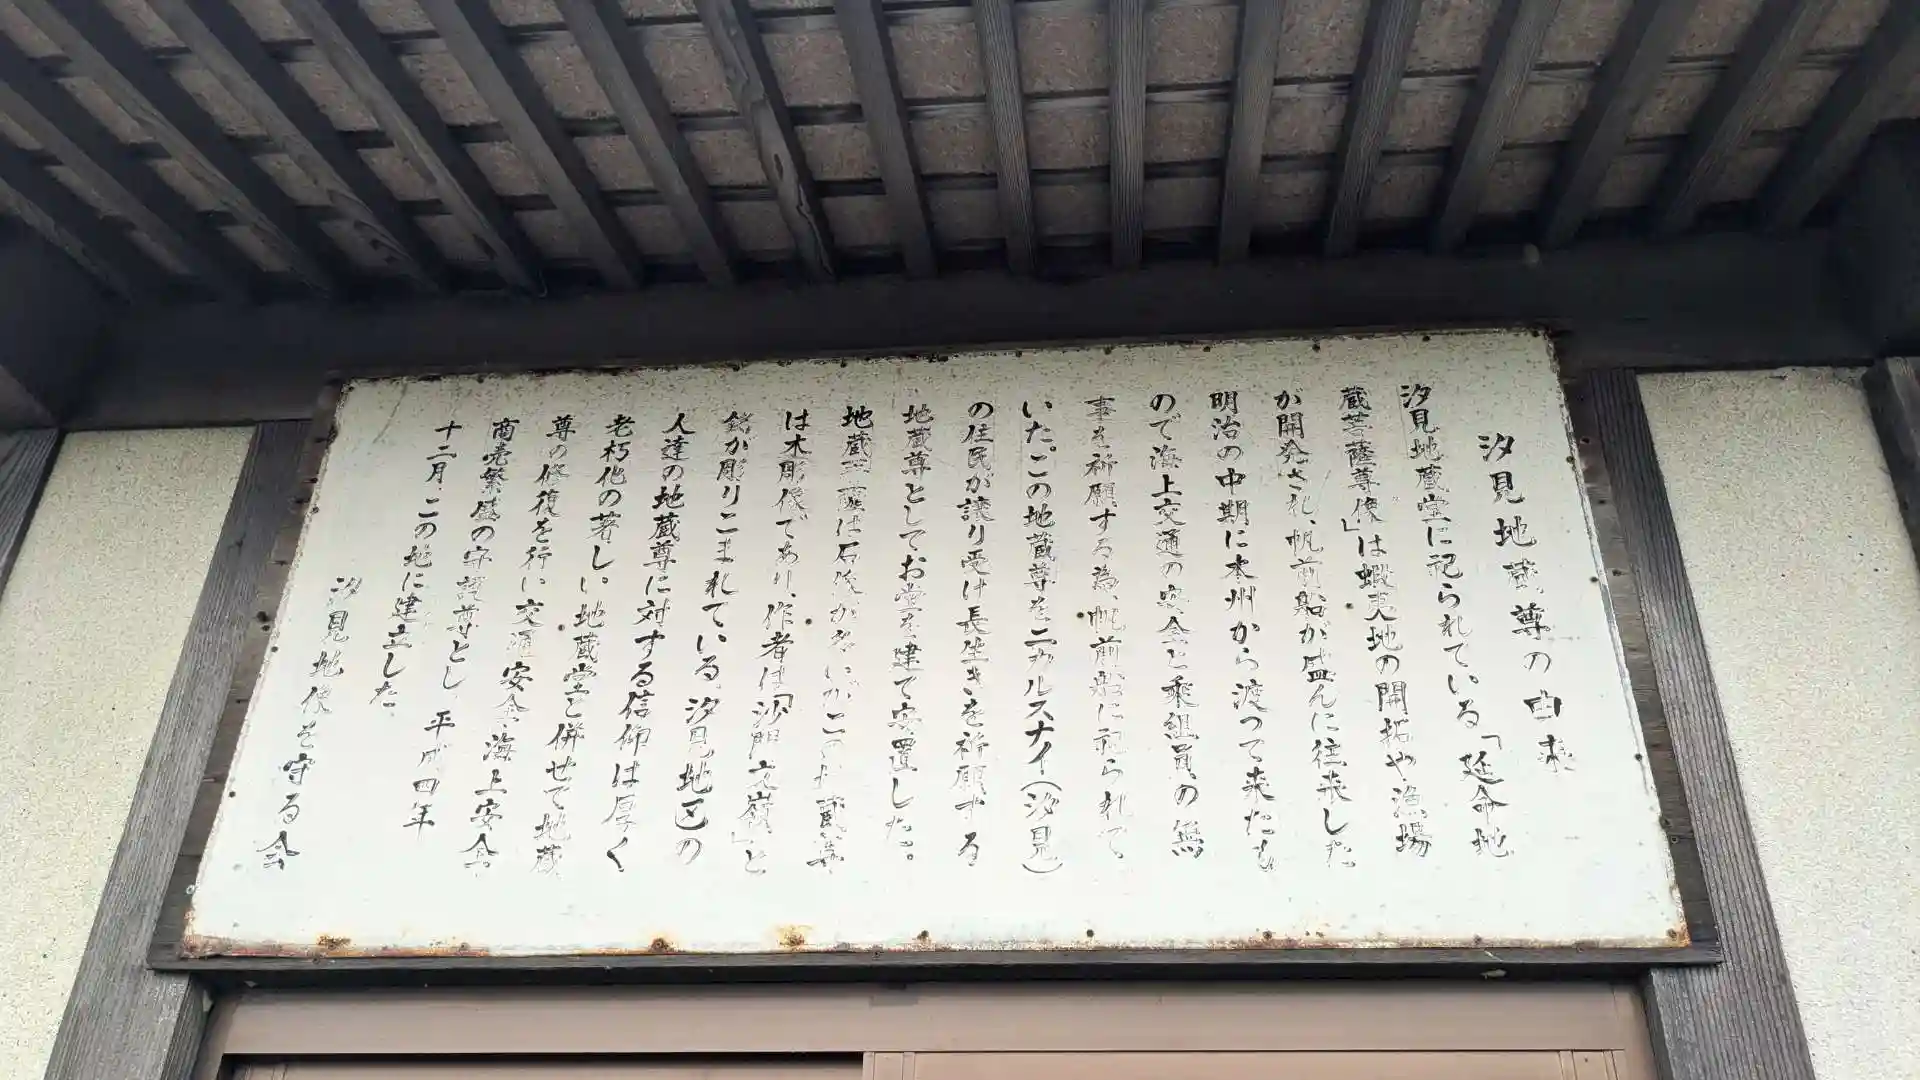 汐見地蔵尊の由来
汐見地蔵堂に祀られている「延命地
蔵菩薩尊像」は蝦夷地の開拓や漁場
が開発され、帆前船が盛んに往来した
明治の中期に本州から渡って来たも
ので海上交通の安全と乗組員の無
事を祈願する為、帆前船に祀られて
いた。この地蔵尊を二カルスナイ(汐見)
の住民が譲り受け長生きを祈願する
地蔵尊としてお堂を建て安置した。
地蔵菩薩は石像が多いがこの地蔵尊
は木彫像であり、作者は「沙門文嶺」と
銘が彫りこまれている。汐見地区の
人達の地蔵尊に対する信仰は厚く
老朽化の著しい地蔵堂と併せて地蔵
尊の修復を行い交通安全、海上安全
商売繁盛の守護尊とし、平成四年
十二月、この地に建立した。
汐見地像を守る会